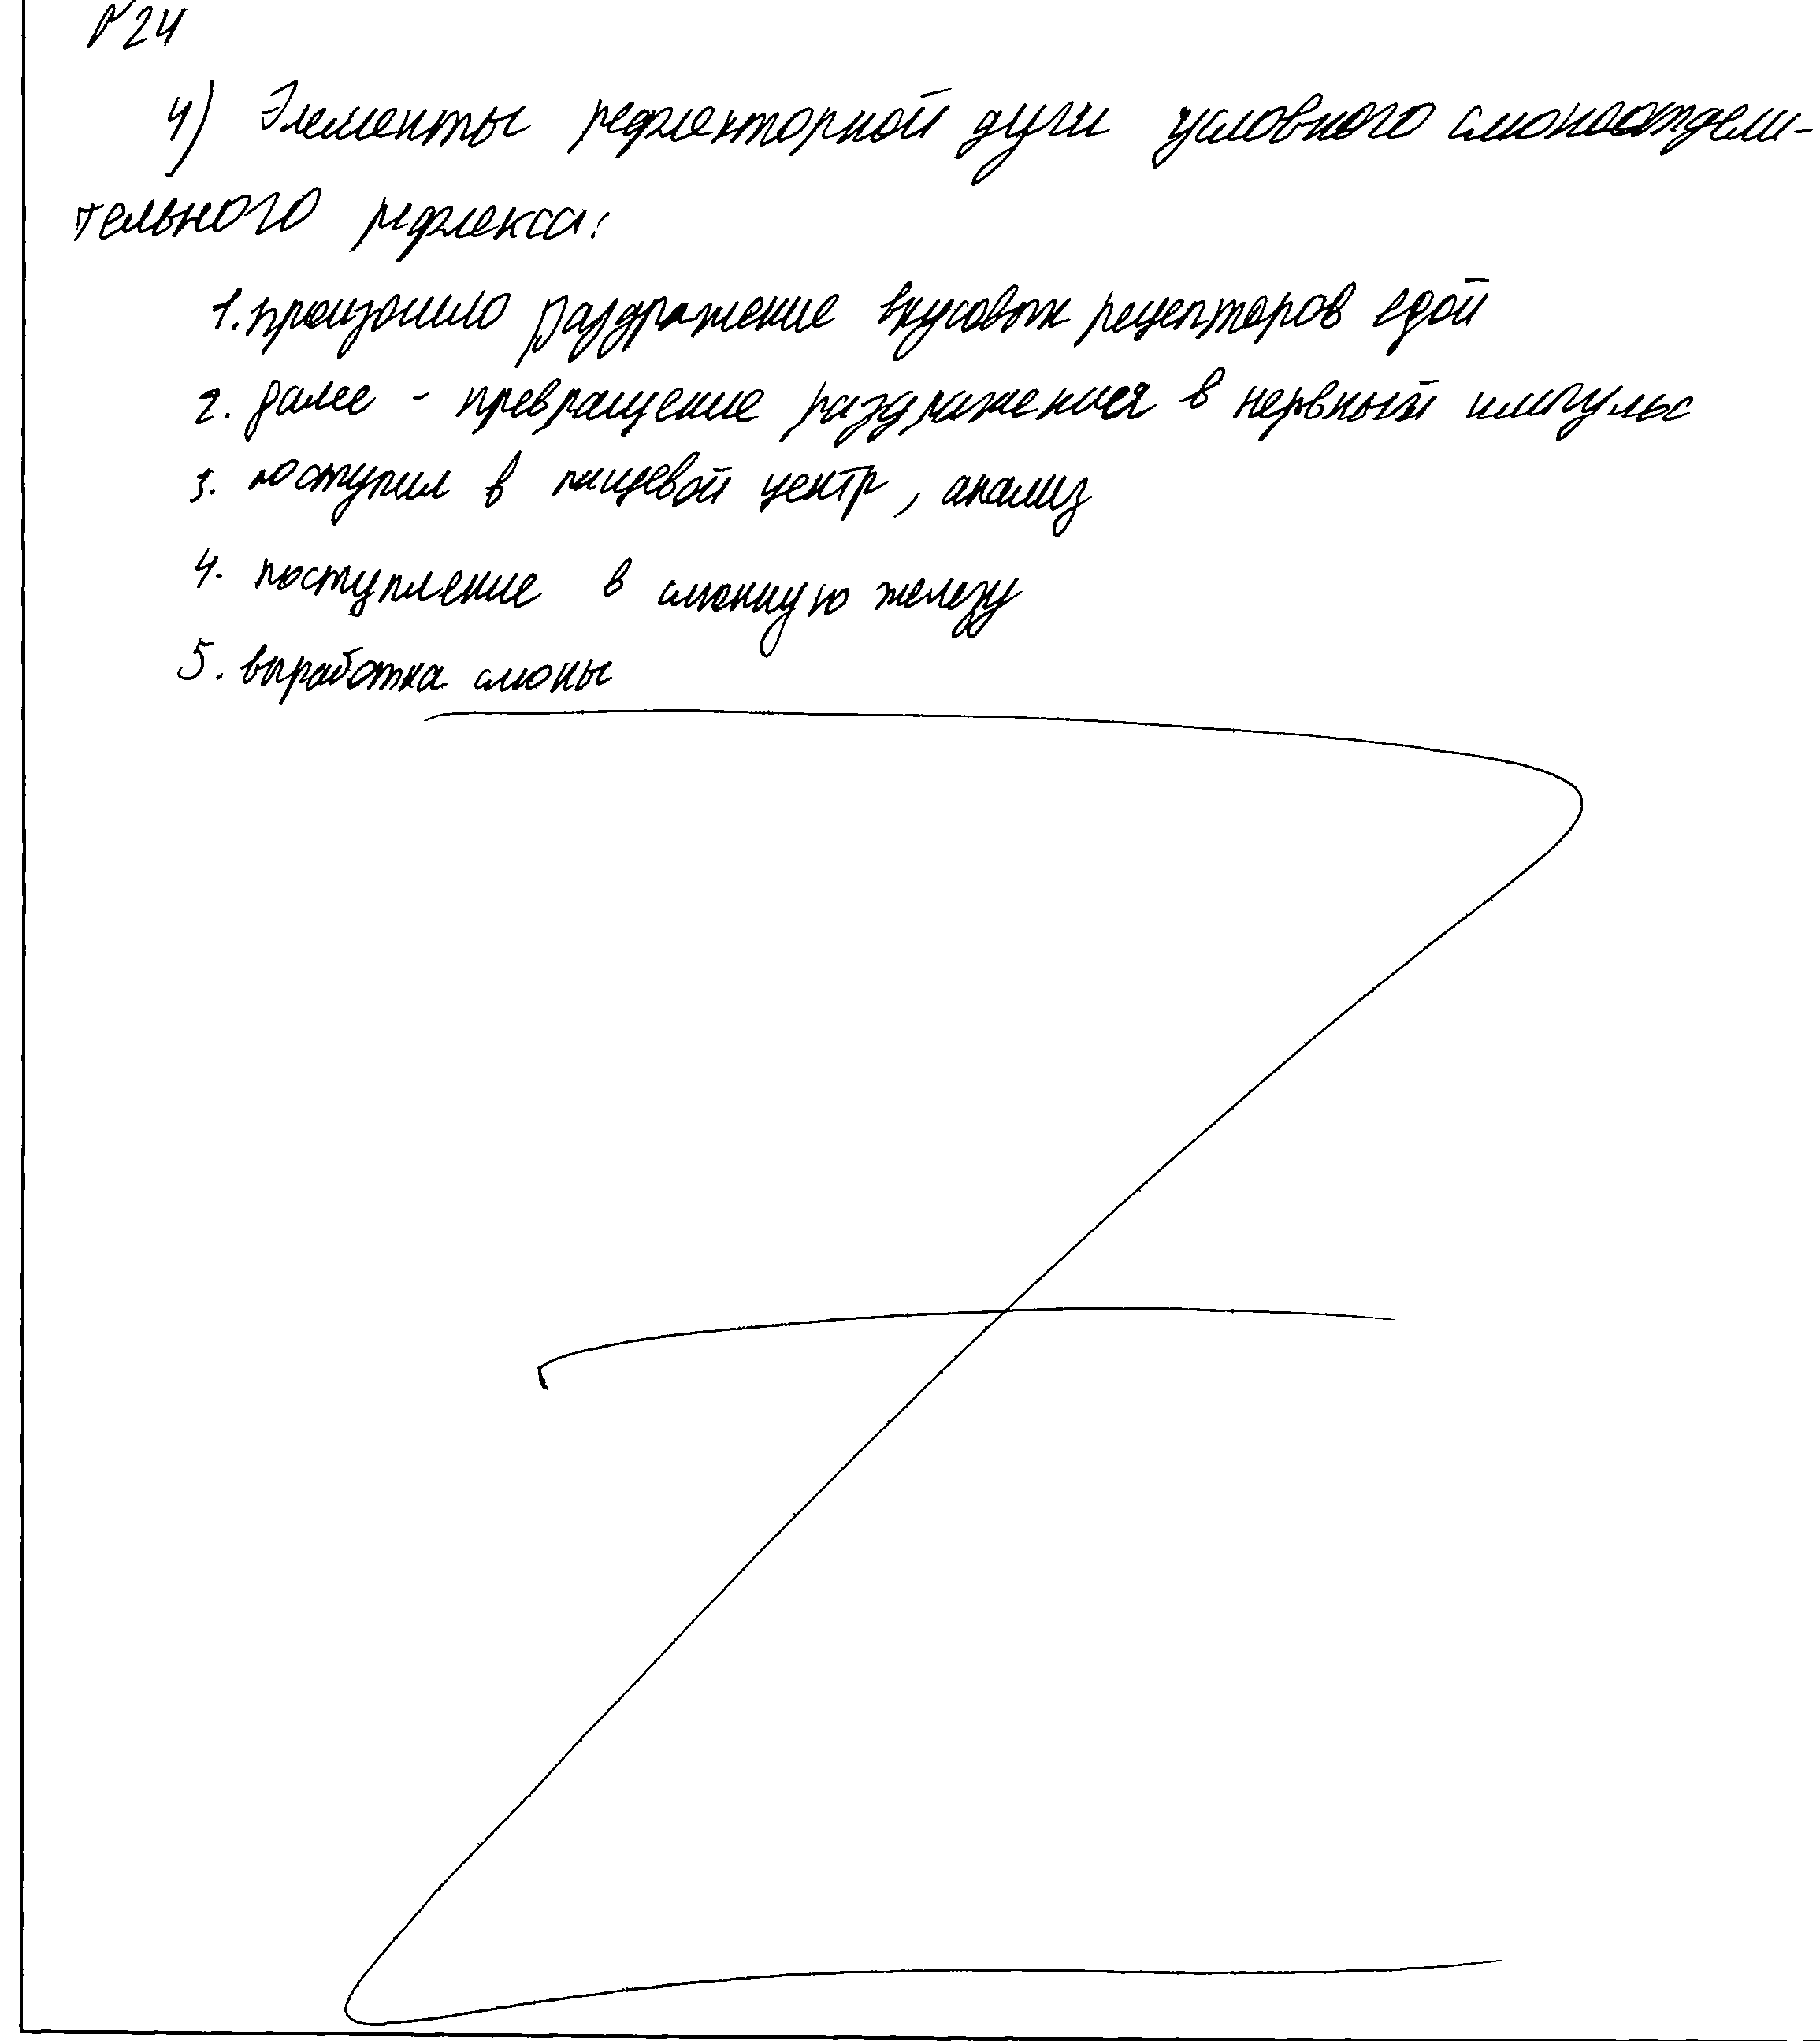 №24
4) Элементы рефлекторной дуги условного слюноотдели-
тельного рефлекса:
1. произошло раздражение вкусовых рецепторов едой
2. далее - превращение раздражения в нервный импульс
3. поступил в пищевой центр, анализ
4. поступление в слюнную железу
5. выработка слюны